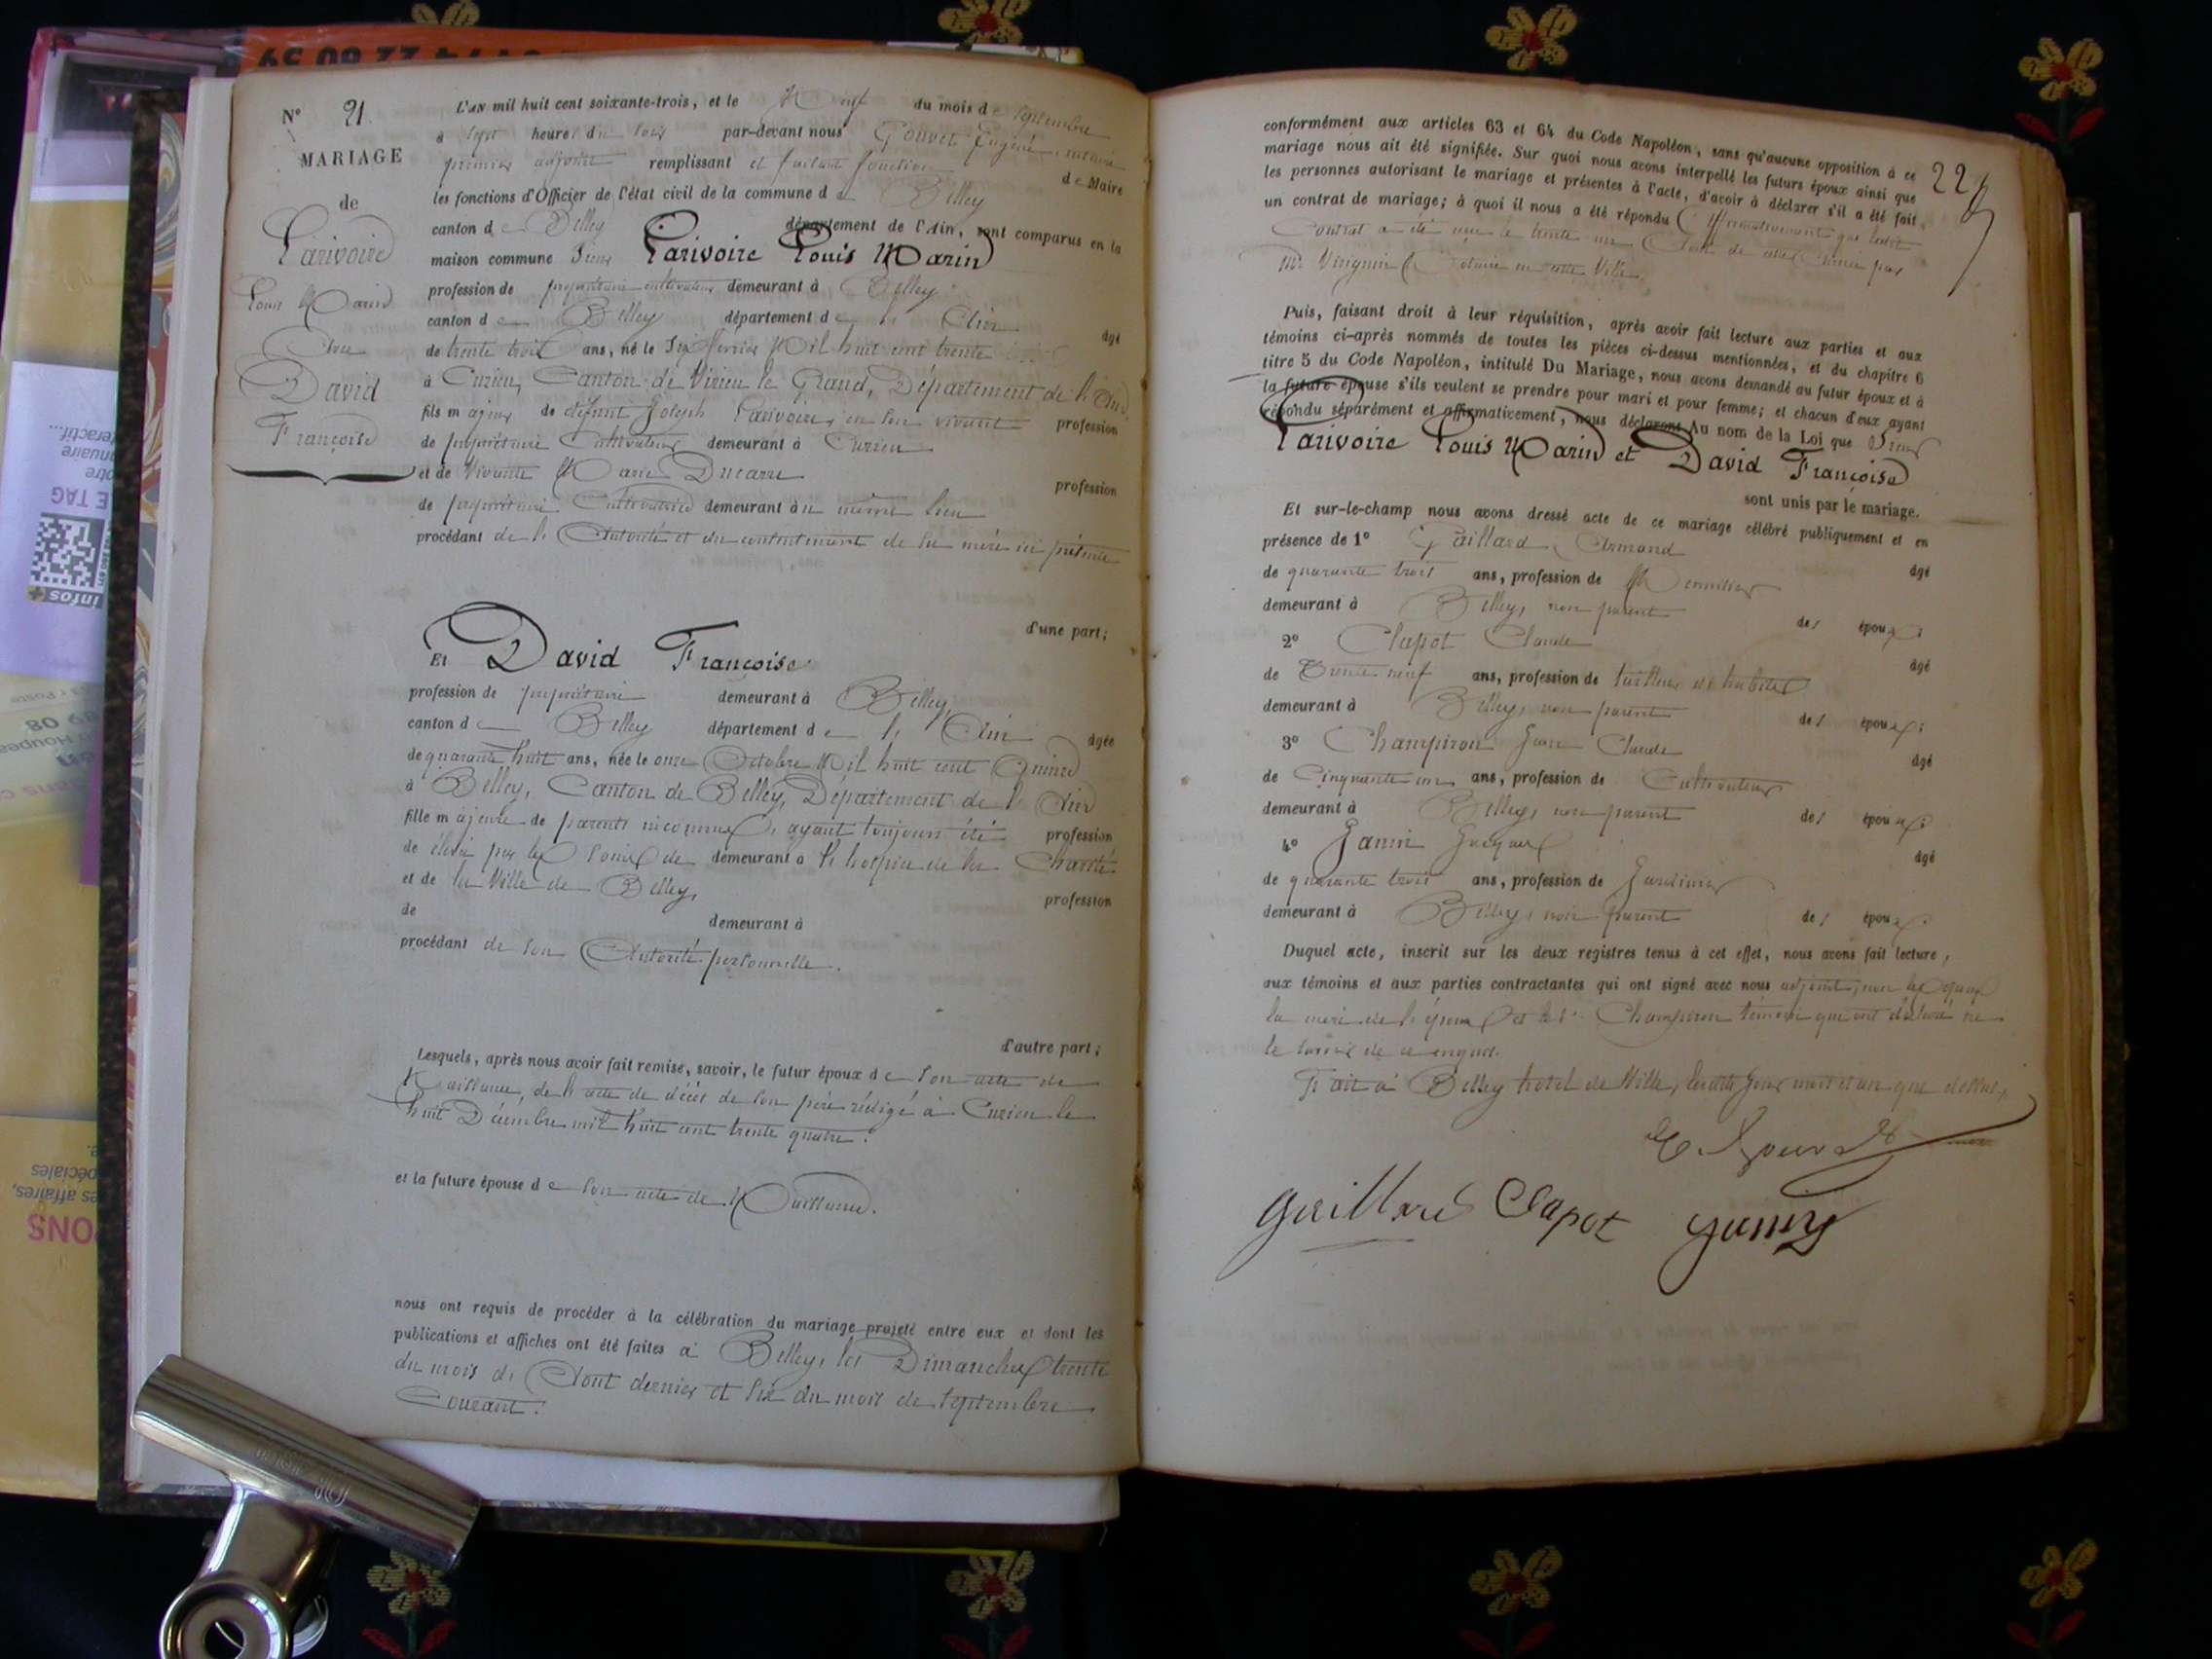 N° 21.
MARIAGE
de
Larivoire
Louis Marin
Avec
David
Françoise
L'AN mil huit cent soixante-trois, et le Neuf du mois de Septembre
à Sept heures du soir par-devant nous Gouvet Eugène
premier adjoint remplissant et faisant fonctions de Maire
les fonctions d'Officier de l'état civil de la commune de Belley
canton de Belley département de l'Ain, sont comparus en la
maison commune Sieur Larivoire Louis Marin
profession de propriétaire cultivateur demeurant à Belley
canton de Belley département de l'Ain âgé
de trente trois ans, né le Six février Mil huit cent trente
à Cuzieu, Canton de Virieu le Grand, Département de l'Ain,
fils majeur de défunt Joseph Larivoire, en son vivant profession
de propriétaire Cultivateur demeurant à Cuzieu
et de Vivante Marie Ducarre profession
de propriétaire Cultivatrice demeurant au même lieu
procédant de l'Autorité et du contentement de sa mère ici présente
d'une part;
Et David Françoise
profession de propriétaire demeurant à Belley,
canton de Belley département de l'Ain âgée
de quarante huit ans, née le onze Octobre Mil huit cent Quinze
à Belley, Canton de Belley, Département de l'Ain
fille majeure de parents inconnus, ayant toujours été profession
de élevée par les soins de demeurant à l'hospice de la Charité
et de la Ville de Belley, profession
de demeurant à
procédant de son Autorité personnelle.
d'autre part;
Lesquels, après nous avoir fait remise, savoir, le futur époux de son acte de
Naissance, de l'acte de décès de son père rédigé à Cuzieu le
huit Décembre mil huit cent trente quatre.
et la future épouse de son acte de Naissance.
nous ont requis de procéder à la célébration du mariage projeté entre eux et dont les
publications et affiches ont été faites à Belley, les Dimanches trente
du mois d'Aout dernier et Six du mois de Septembre
Courant.
22
conformément aux articles 63 et 64 du Code Napoléon, sans qu'aucune opposition à ce
mariage nous ait été signifiée. Sur quoi nous avons interpellé les futurs époux ainsi que
les personnes autorisant le mariage et présentes à l'acte, d'avoir à déclarer s'il a été fait
un contrat de mariage; à quoi il nous a été répondu Affirmativement que ledit
Contrat a été reçu le trente un Aout de cette année par
Me Notaire en cette Ville.
Puis, faisant droit à leur réquisition, après avoir fait lecture aux parties et aux
témoins ci-après nommés de toutes les pièces ci-dessus mentionnées, et du chapitre 6
titre 5 du Code Napoléon, intitulé Du Mariage, nous avons demandé au futur époux et à
la future épouse s'ils veulent se prendre pour mari et pour femme; et chacun d'eux ayant
répondu séparément et affirmativement, nous déclarons Au nom de la Loi que Sieur
Larivoire Louis Marin et David Françoise
sont unis par le mariage.
Et sur-le-champ nous avons dressé acte de ce mariage célébré publiquement et en
présence de 1° Gaillard Armand âgé
de quarante trois ans, profession de Menuisier
demeurant à Belley, non parent des époux;
2° Clapot Claude âgé
de Trente neuf ans, profession de tailleur de habits
demeurant à Belley, non parent des époux;
3° Champiron Jean Claude âgé
de Cinquante un ans, profession de Cultivateur
demeurant à Belley, non parent des époux;
4° Janin Jacques âgé
de quarante trois ans, profession de Jardinier
demeurant à Belley, non parent des époux.
Duquel acte, inscrit sur les deux registres tenus à cet effet, nous avons fait lecture,
aux témoins et aux parties contractantes qui ont signé avec nous adjoint, non les époux
la mère de l'époux et le Sr Champiron témoin qui ont déclaré ne
le savoir de ce enquis.
Fait à Belley hotel de Ville, lesdits jour mois et an que dessus,
Gaillard Clapot Janin